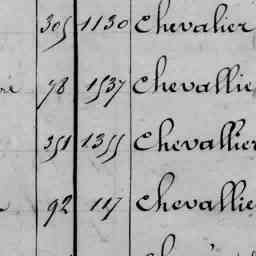 305 1130 Chevalier
78 1537 Chevallie
351 1355 Chevallier
92 117 Chevallie